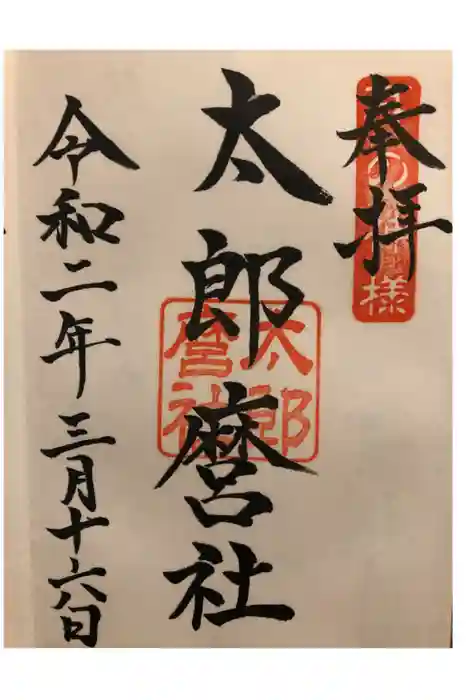 奉拝
様
太郎麿社
太郎
麿社
令和二年三月十六日